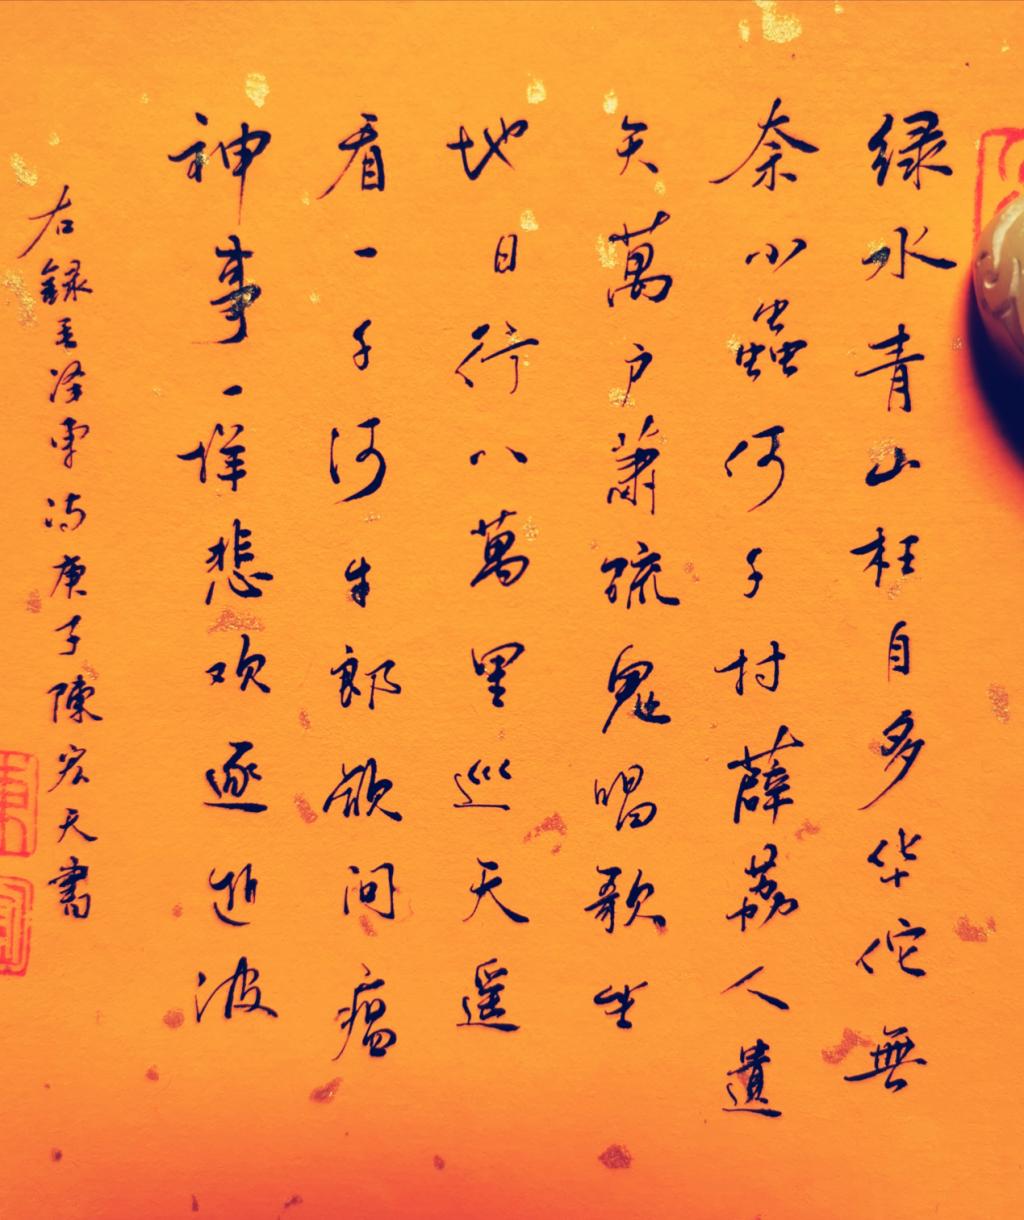 绿水青山枉自多华佗無
奈小蟲何千村薜荔人遺
矢萬户蕭疏鬼唱歌坐
地日行八萬里巡天遥
看一千河牛郎欲问瘟
神事一样悲欢逐逝波
右録毛泽東诗庚子陳宏天書